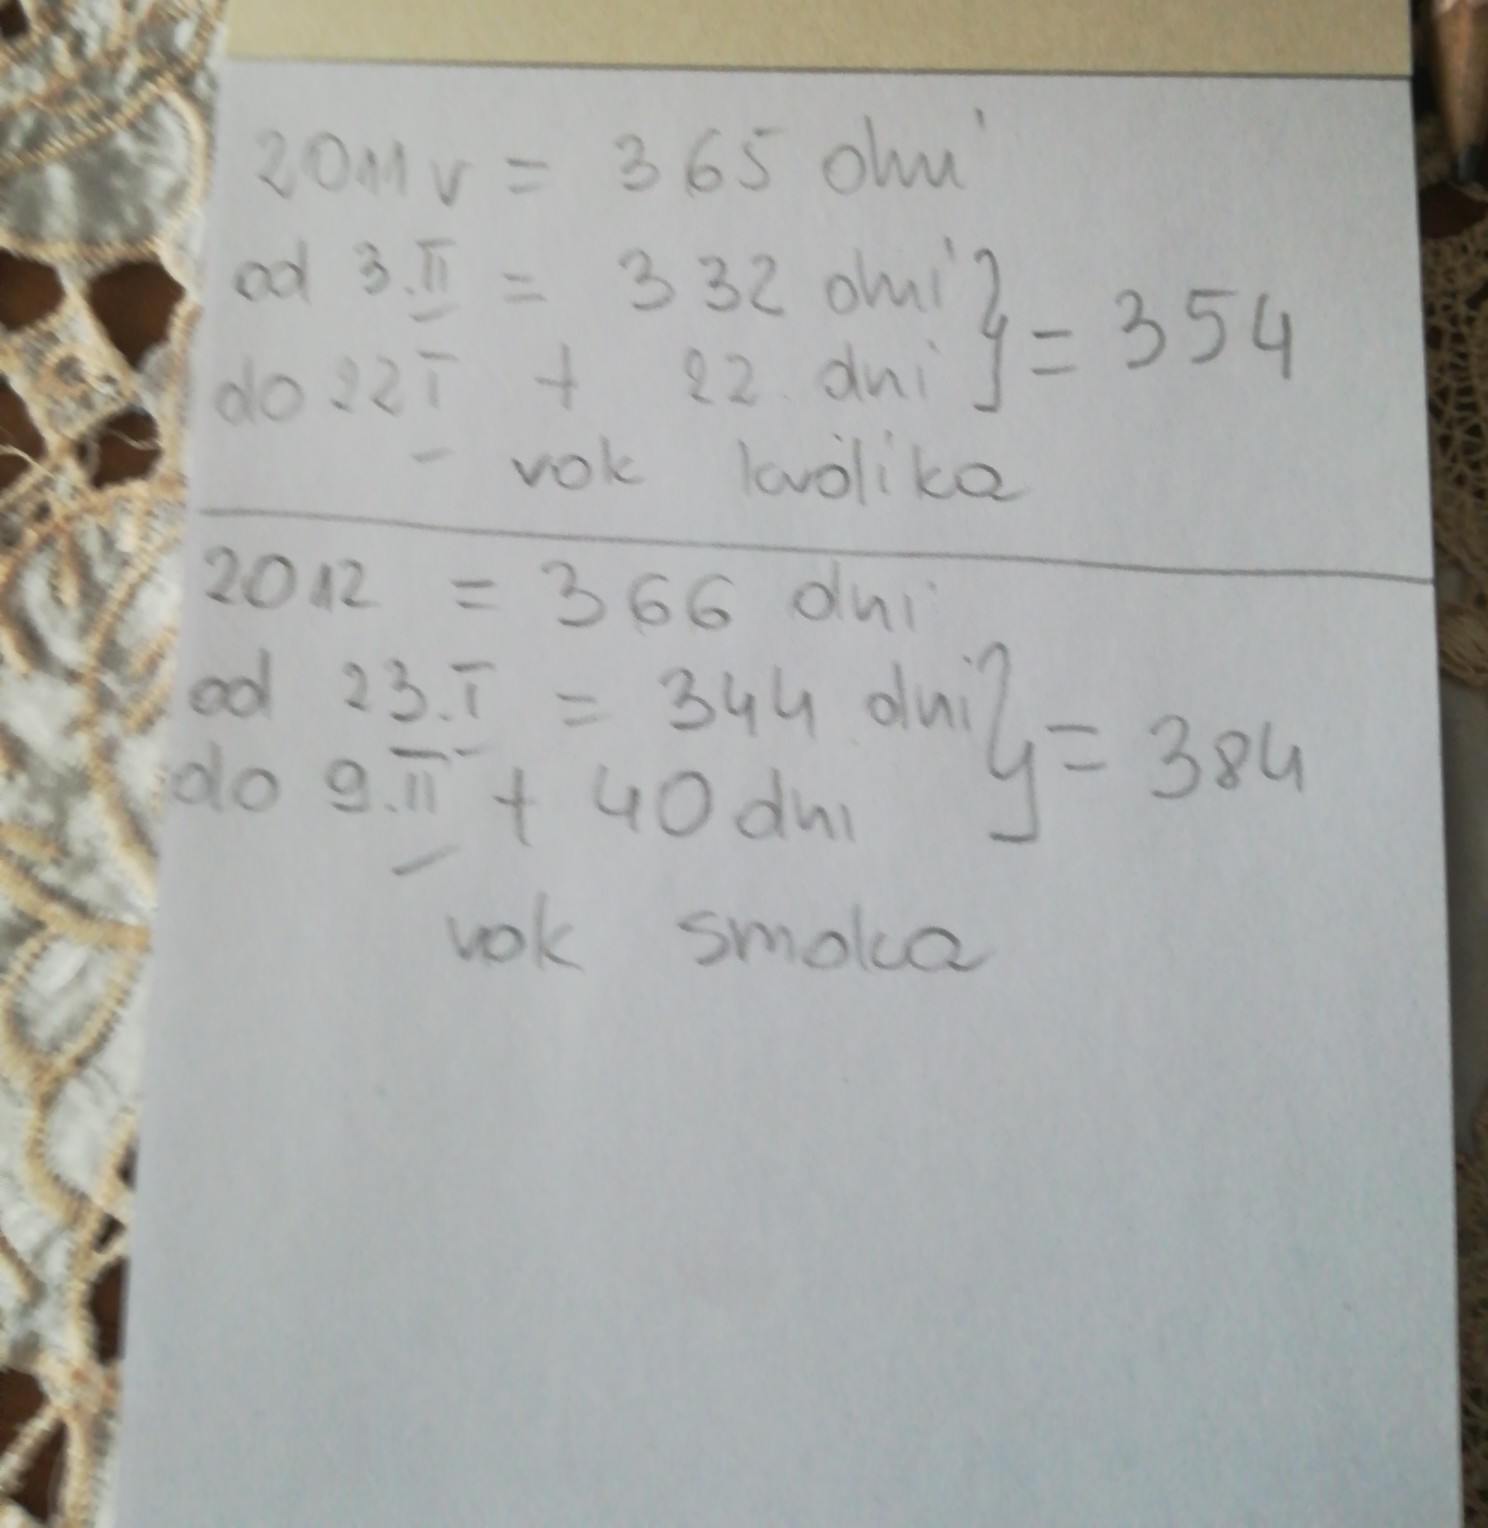 2011 r = 365 dni
od 3.II = 332 dni } = 354
do 22 I + 22 dni
rok królika
2012 = 366 dni
od 23.I = 344 dni } = 384
do 9.II + 40 dni
rok smoka